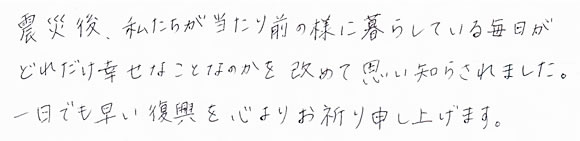 震災後、私たちが当たり前の様に暮らしている毎日が
どれだけ幸せなことなのかを改めて思い知らされました。
一日でも早い復興を心よりお祈り申し上げます。